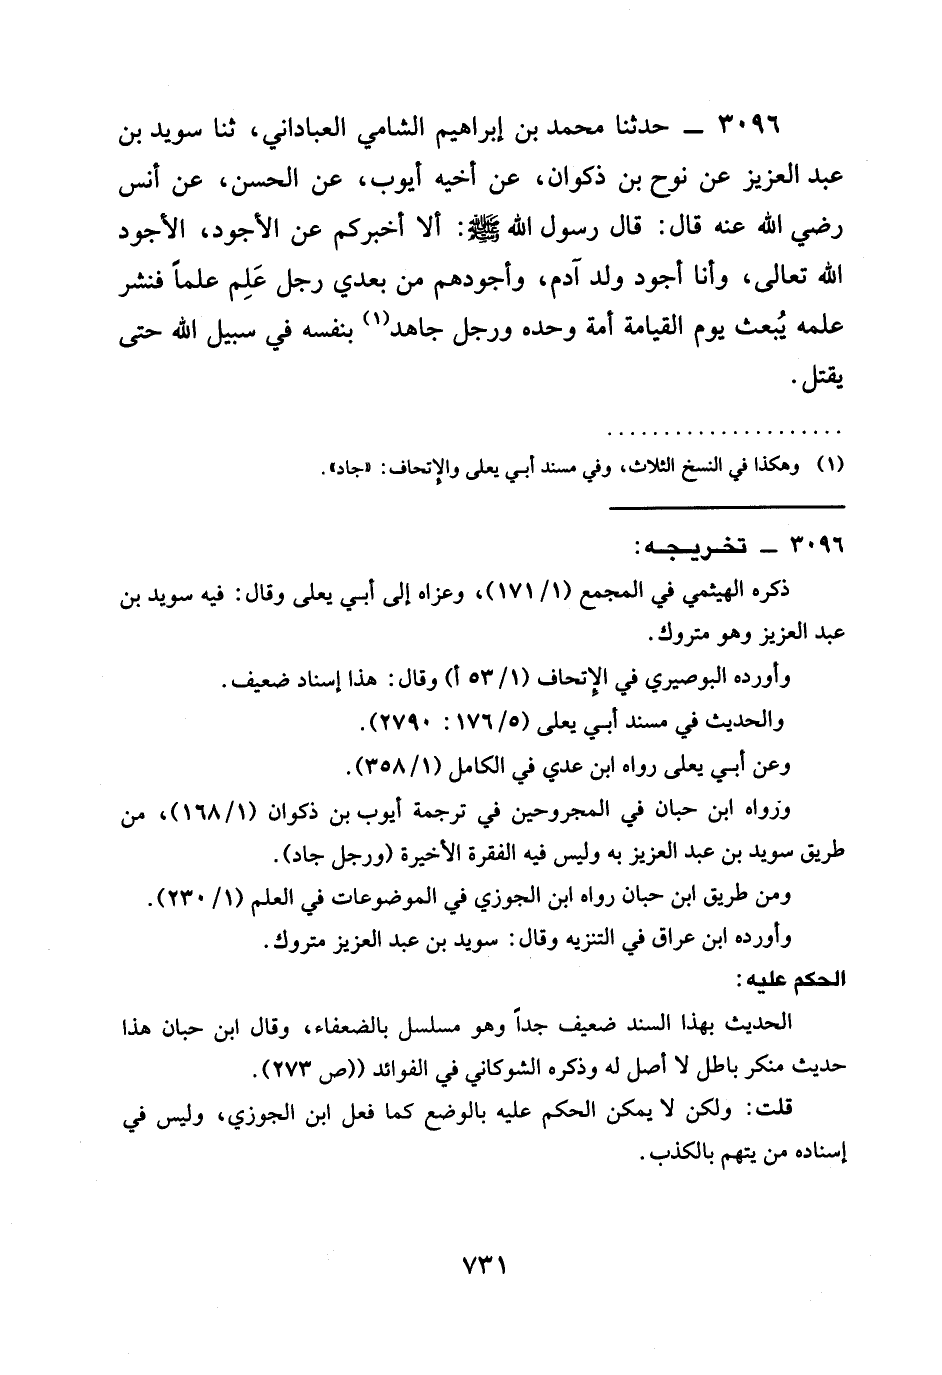 ٣٠٩٦ ــ حدثنا محمد بن إبراهيم الشامي العباداني، ثنا سويد بن
عبد العزيز عن نوح بن ذكوان، عن أخيه أيوب، عن الحسن، عن أنس
رضي الله عنه قال: قال رسول الله ﷺ: ألا أخبركم عن الأجود، الأجود
الله تعالى، وأنا أجود ولد آدم، وأجودهم من بعدي رجل عَلِم علماً فنشر
علمه يُبعث يوم القيامة أمة وحده ورجل جاهد(١) بنفسه في سبيل الله حتى
يقتل.
....................
(١) وهكذا في النسخ الثلاث، وفي مسند أبي يعلى والإتحاف: «جاد».
٣٠٩٦ ــ تخريجه:
ذكره الهيثمي في المجمع (١/ ١٧١)، وعزاه إلى أبي يعلى وقال: فيه سويد بن
عبد العزيز وهو متروك.
وأورده البوصيري في الإتحاف (١/ ٥٣ أ) وقال: هذا إسناد ضعيف.
والحديث في مسند أبي يعلى (٥/ ١٧٦: ٢٧٩٠).
وعن أبي يعلى رواه ابن عدي في الكامل (١/ ٣٥٨).
وزواه ابن حبان في المجروحين في ترجمة أيوب بن ذكوان (١/ ١٦٨)، من
طريق سويد بن عبد العزيز به وليس فيه الفقرة الأخيرة (ورجل جاد).
ومن طريق ابن حبان رواه ابن الجوزي في الموضوعات في العلم (١/ ٢٣٠).
وأورده ابن عراق في التنزيه وقال: سويد بن عبد العزيز متروك.
الحكم عليه:
الحديث بهذا السند ضعيف جداً وهو مسلسل بالضعفاء، وقال ابن حبان هذا
حديث منكر باطل لا أصل له وذكره الشوكاني في الفوائد ((ص ٢٧٣).
قلت: ولكن لا يمكن الحكم عليه بالوضع كما فعل ابن الجوزي، وليس في
إسناده من يتهم بالكذب.
٧٣١